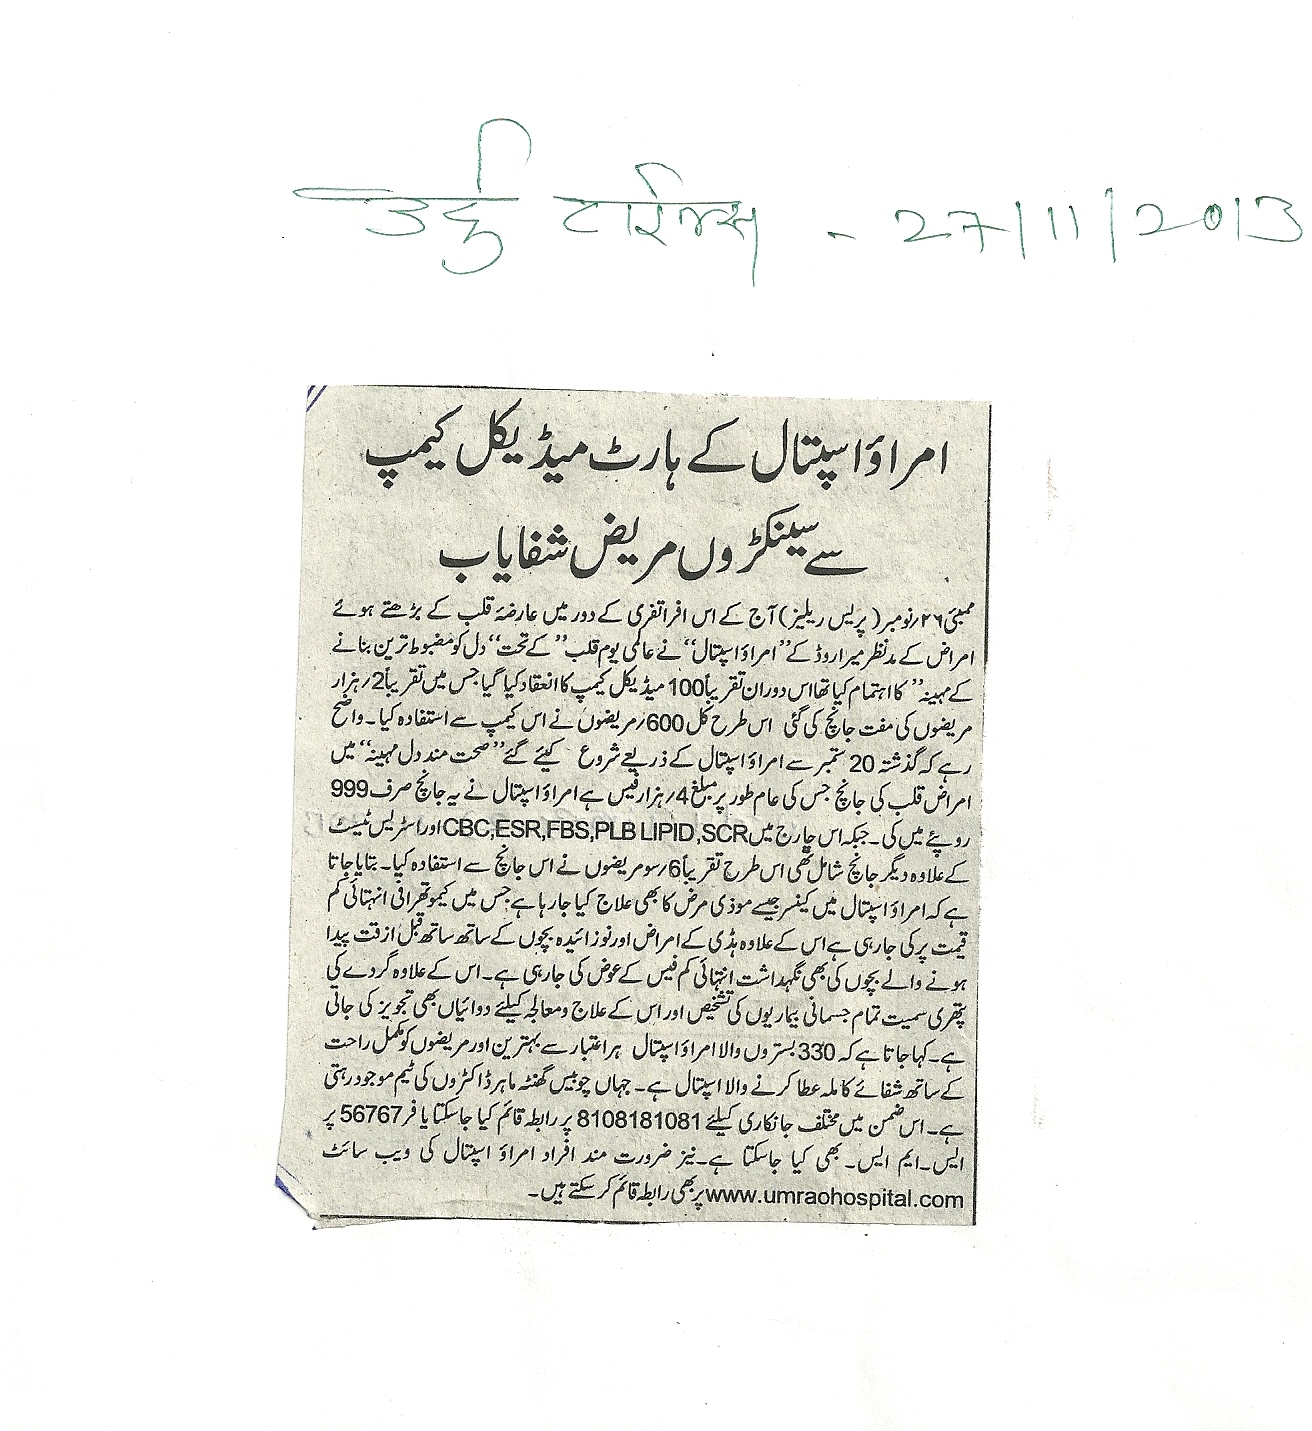 उर्दू टाईम्स - 27/11/2013
امراؤ اسپتال کے ہارٹ میڈیکل کیمپ
سے سینکڑوں مریض شفایاب
ممبئی ۲۶؍نومبر (پریس ریلیز) آج کے اس افراتفری کے دور میں عارضۂ قلب کے بڑھتے ہوئے
امراض کے مدنظر میرا روڈ کے ’’امراؤ اسپتال‘‘ نے عالمی یوم قلب’’ کے تحت‘‘ دل کو مضبوط ترین بنانے
کے مہینہ’’ کا اہتمام کیا تھا اس دوران تقریباً 100 میڈیکل کیمپ کا انعقاد کیا گیا جس میں تقریباً 2؍ ہزار
مریضوں کی مفت جانچ کی گئی اس طرح کل 600؍ مریضوں نے اس کیمپ سے استفادہ کیا۔ واضح
رہے کہ گذشتہ 20 ستمبر سے امراؤ اسپتال کے ذریعے شروع کیئے گئے ’’صحت مند دل مہینہ‘‘ میں
امراض قلب کی جانچ جس کی عام طور پر مبلغ 4؍ ہزار فیس ہے امراؤ اسپتال نے یہ جانچ صرف 999
روپئے میں کی۔ جبکہ اس چارج میں CBC,ESR,FBS,PLB LIPID,SCR اور اسٹریس ٹیسٹ
کے علاوہ دیگر جانچ شامل تھی اس طرح تقریباً 6؍ سو مریضوں نے اس جانچ سے استفادہ کیا۔ بتایا جاتا
ہے کہ امراؤ اسپتال میں کینسر جیسے موذی مرض کا بھی علاج کیا جارہا ہے جس میں کیموتھراپی انتہائی کم
قیمت پر کی جارہی ہے اس کے علاوہ ہڈی کے امراض اور نوزائیدہ بچوں کے ساتھ ساتھ قبل از وقت پیدا
ہونے والے بچوں کی بھی نگہداشت انتہائی کم فیس کے عوض کی جارہی ہے۔ اس کے علاوہ گردے کی
پتھری سمیت تمام جسمانی بیماریوں کی تشخیص اور اس کے علاج و معالجہ کیلئے دوائیاں بھی تجویز کی جاتی
ہے۔ کہا جاتا ہے کہ 330 بستروں والا امراؤ اسپتال ہر اعتبار سے بہترین اور مریضوں کو مکمل راحت
کے ساتھ شفائے کاملہ عطا کرنے والا اسپتال ہے۔ جہاں چوبیس گھنٹہ ماہر ڈاکٹروں کی ٹیم موجود رہتی
ہے۔ اس ضمن میں مختلف جانکاری کیلئے 8108181081 پر رابطہ قائم کیا جاسکتا یا فر 56767 پر
ایس۔ ایم ایس۔ بھی کیا جاسکتا ہے۔ نیز ضرورت مند افراد امراؤ اسپتال کی ویب سائٹ
www.umraohospital.com پر بھی رابطہ قائم کرسکتے ہیں۔